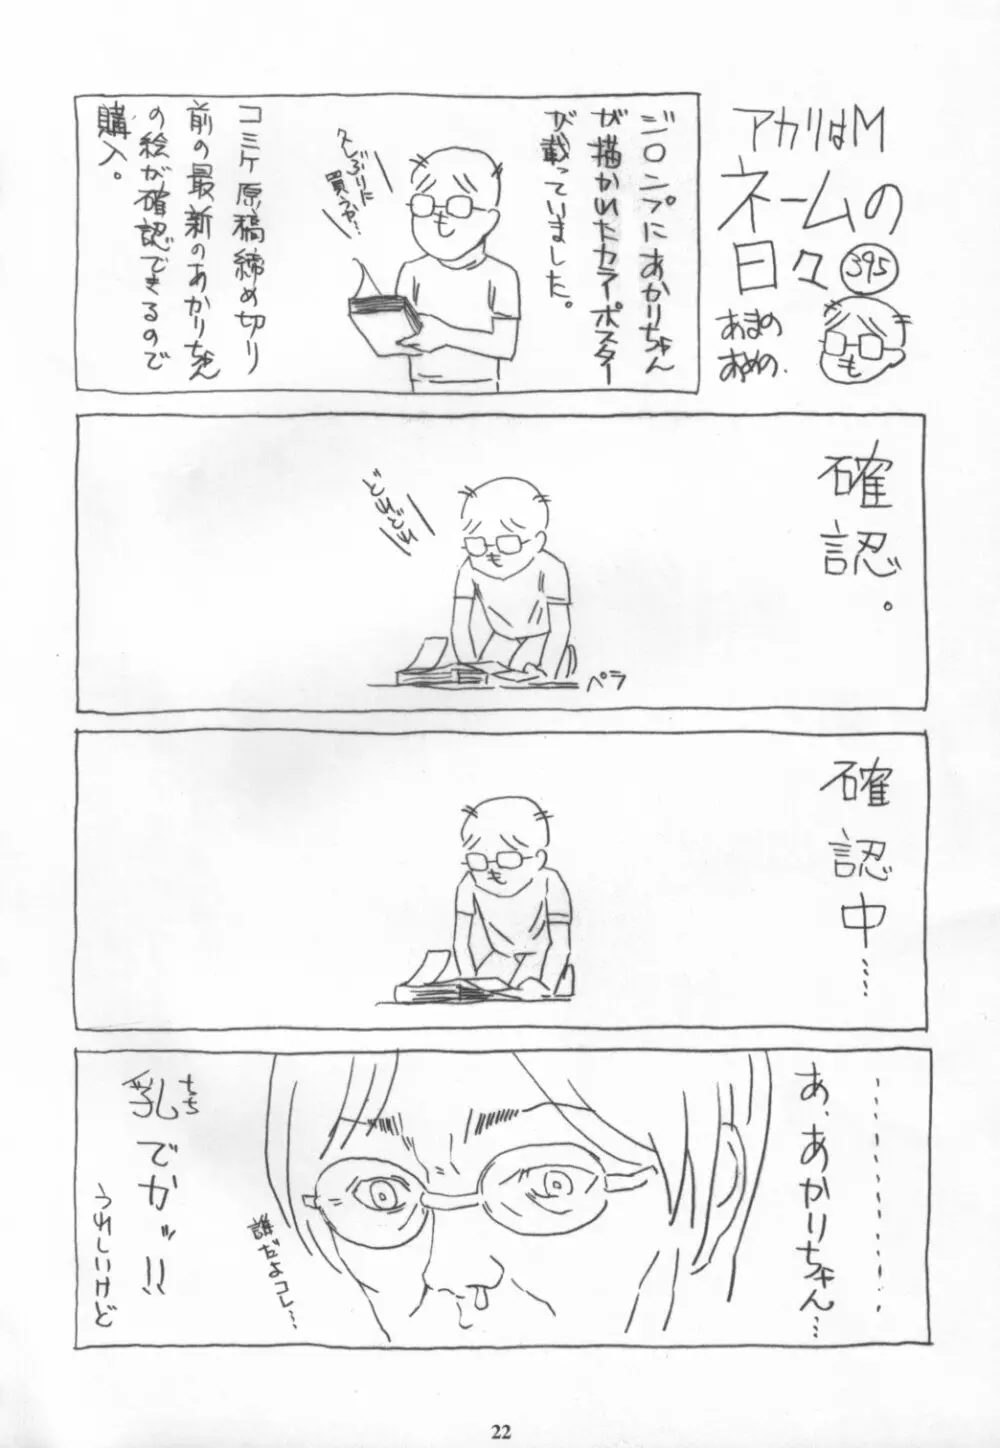 アカリはM
ネームの
日々
395
あまの
あめの.
ジャンプにあかりちゃん
が描かれたカラーポスター
が載っていました。
久しぶりに
買うか…
コミケ原稿締め切り
前の最新のあかりちゃん
の絵が確認できるので
購入。
確認。
どれどれ
ペラ
確認中……
………
あ、あかりちゃん…
誰だよコレ…
乳でかッ!!
ちち
うれしいけど
22